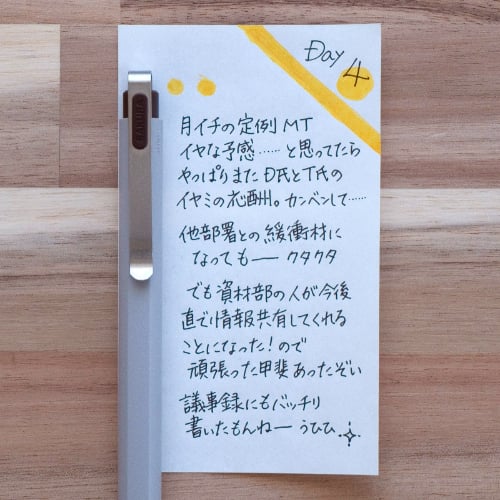 Day 4
月イチの定例MT
イヤな予感……と思ってたら
やっぱりまたD氏とT氏の
イヤミの応酬。カンベンして……
他部署との緩衝材に
なっても── クタクタ
でも資材部の人が今後
直で情報共有してくれる
ことになった！ので
頑張った甲斐あったぞい
議事録にもバッチリ
書いたもんねー うひひ